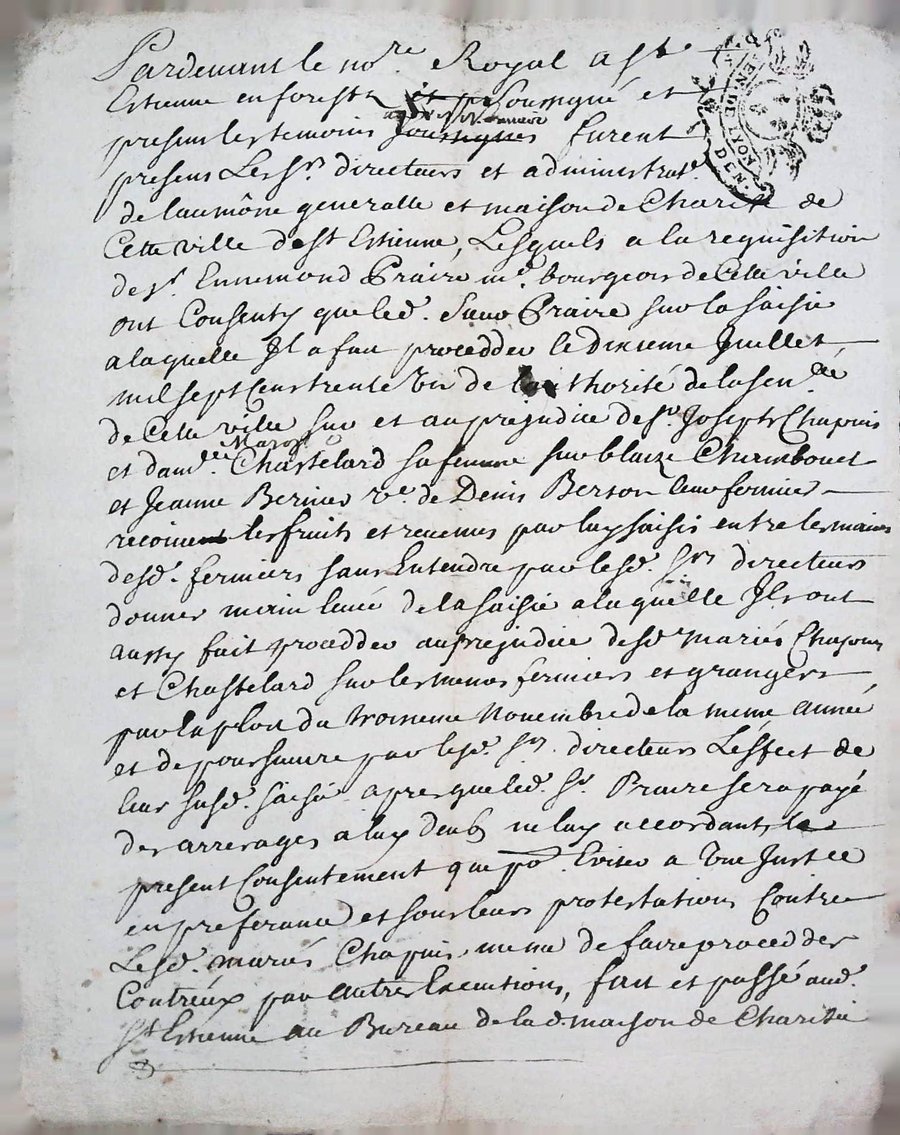 Pardevant le no.re Royal a St
Estienne en forestz et p Soussigné et
presens les temoins soussignes furent
presens Les Srs. directeurs et administrat.
de laumône generalle et maison de Charité de
Cette ville de St Estienne, Lesquels a la requisition
de Sr. Ennemond Praire md. bourgeois de Cette ville
ont Consenty que led. Sieur Praire sur la saisie
a laquelle Il a fait procedder le dixieme Juillet
mil sept Cens trente un de lauthorité de la sen.cée
de Cette ville sur et au prejudice de Sr. Joseph Chapuis
et dam.lle Marg.te Chastelard sa femme sur blaize Chirmbouet
et Jeanne Bernier ve. de Denis Berton leur fermier
recoivent les fruits et revenus par luy saisis entre les mains
desd. fermiers sans Entendre par lesd. Srs directeurs
donner main levée de la saisie a laquelle Ils ont
aussy fait procedder au prejudice desd mariés Chapuis
et Chastelard sur les memes fermiers et grangers
par exploit du troisieme Novembre de la meme année
et de poursuivre par lesd. Srs. directeurs Leffect de
leur susd. saisie apres que led. Sr Praire sera payé
des arrerages a luy deubs ne luy accordants le
present Consentement que po.r Eviter a Une Justce
en preferance et sous leurs protestations Contre
Lesd. mariés Chapuis meme de faire procedder
Contreux par autres Executions, fait et passé aud.
St Estienne au Bureau de lad. maison de Charité
DEN. DE NONT